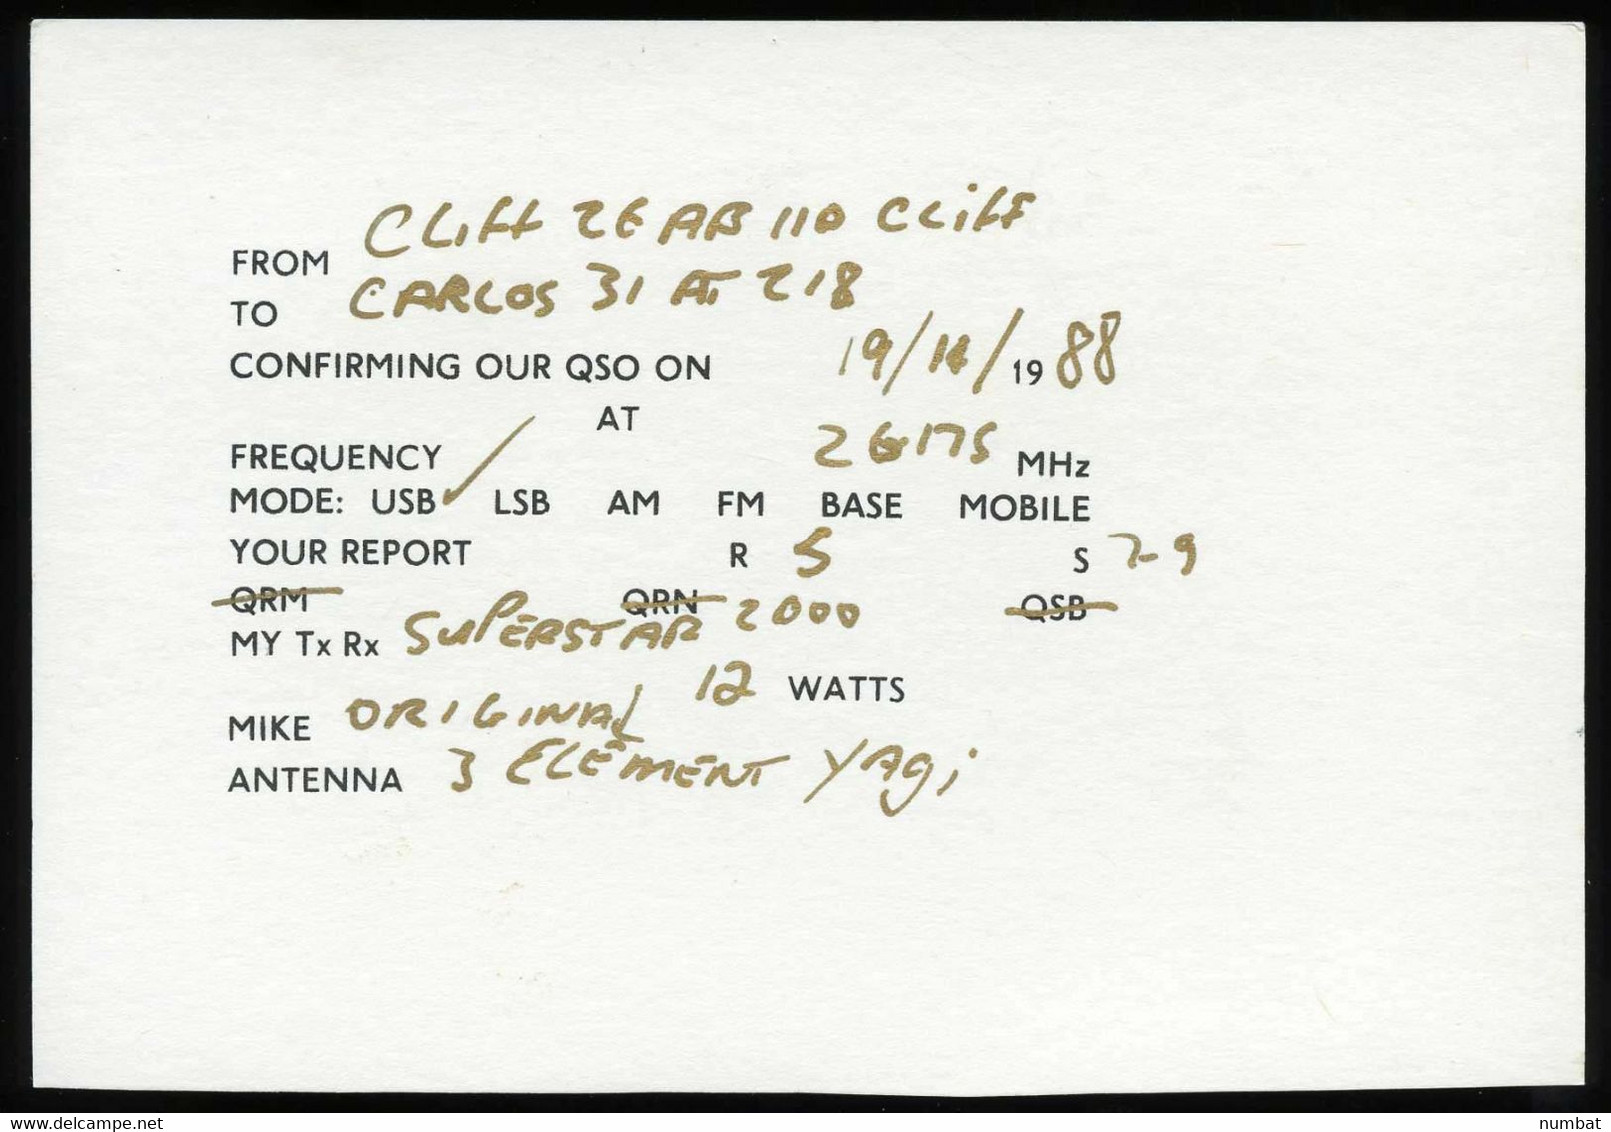 FROM Cliff 26 AB 110 Cliff
TO CARLOS 31 AT 218
CONFIRMING OUR QSO ON 19/ / 19 88
AT
FREQUENCY MHz
MODE: USB ✓ LSB AM FM BASE MOBILE
YOUR REPORT R 5 S 7-9
QRM QRN QSB
MY Tx Rx SUPERSTAR 2000
12 WATTS
MIKE ORIGINAL
ANTENNA 3 ELEMENT YAgi
www.delcampe.net
numbat